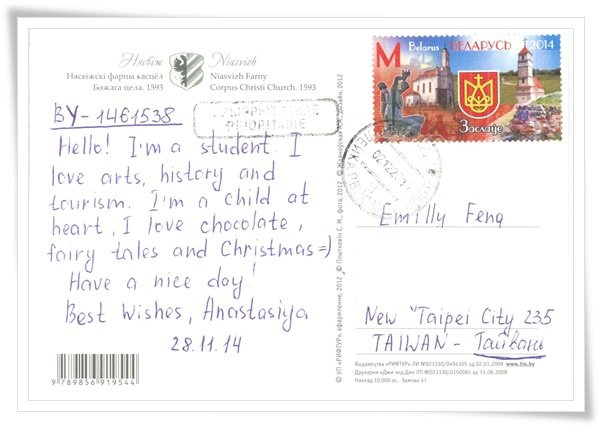 Нясвіж
Niasvizh
Нясвіжскі фарны касцёл
Божага цела. 1593
Niasvizh Farny
Corpus Christi Church. 1593
M Belarus БЕЛАРУСЬ 2014
Заслаўе
BY-1461538
PRIORITAIRE
Hello! I'm a student. I
love arts, history and
tourism. I'm a child at
heart, I love chocolate,
fairy tales and Christmas =)
Have a nice day!
Best Wishes, Anastasiya
28.11.14
Emilly Feng
New Taipei City 235
TAIWAN - Тайвань
9 789856 919544
© УП «РИФТУР», оформление, 2012
Выдавецтва «РИФТУР» ЛИ №02330/0494305 ад 02.01.2009 www.tio.by
Друкарня «Джи энд Ди» ЛП №02330/0150065 ад 15.06.2008
Наклад 10.000 ас. Замова 47